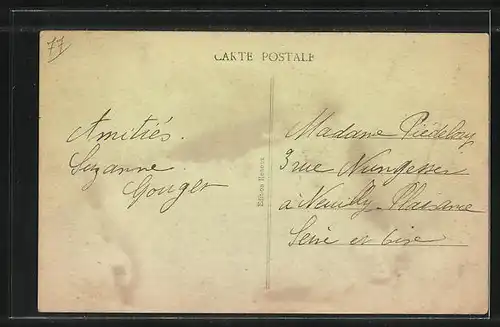 77
CARTE POSTALE
Amitiés.
Suzanne
Gouger
Edition
Madame Piédeloup
3 rue Nungesser
à Neuilly-Plaisance
Seine et Oise